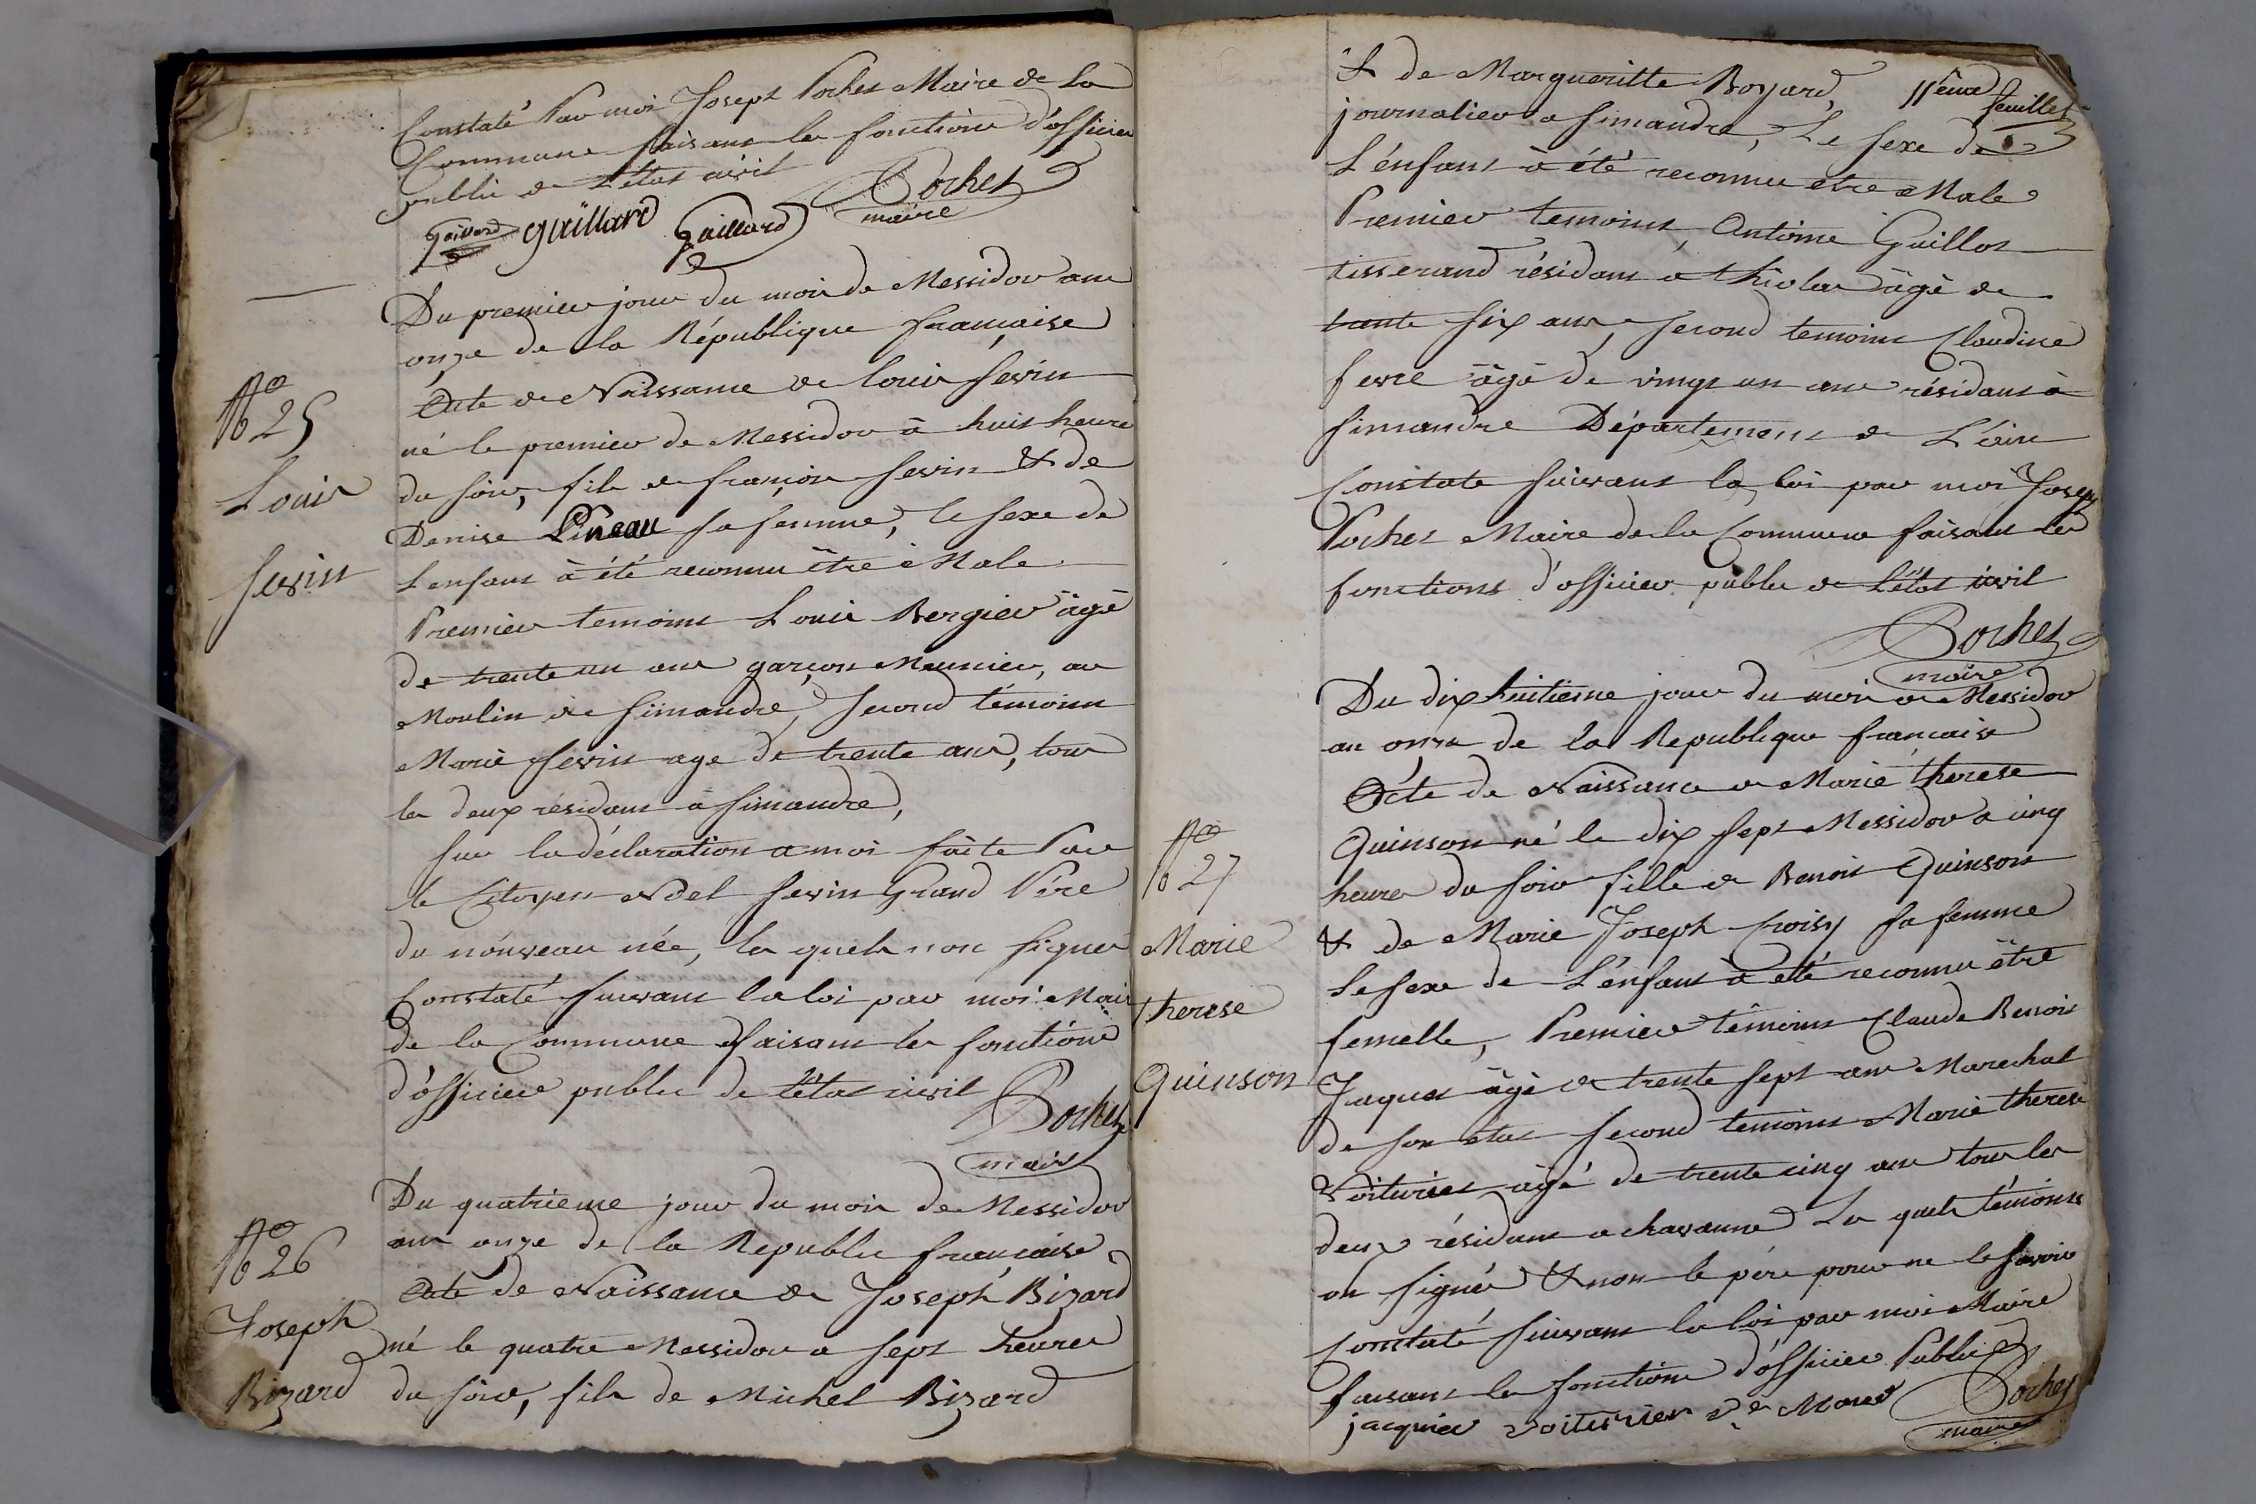 Constaté Par moi Joseph Pochet Maire de la
Commune faisant les fonctions d'officier
public de l'état civil
Pochet
maire
Gaillard guillard Gaillard
Du premier jour du mois de Messidor an
onze de la République française
No 25
Louis
Sevin
Acte de Naissance de Louis Sevin
né le premier de Messidor à huit heure
du soir, fils de françois Sevin & de
Denise Pineau sa femme, le sexe de
L'enfant à été reconnu être Male
Premier temoins Louis Bergier âgé
de trente un ans garçon Meunier, au
Moulin de Simandre, second témoins
Marie Sevin age de trente ans, tous
les deux résidant à Simandre,
sur la déclaration a moi faite Par
le Citoyen Sevin Grand Père
du nouveau née, les quels non signés
Constaté suivant la loi par moi Maire
de la Commune faisant les fonctions
d'officier public de l'état civil
Pochet
maire
Du quatrieme jour du mois de Messidor
an onze de la Republic française
No 26
Joseph
Bizard
Acte de Naissance de Joseph Bizard
né le quatre Messidor a sept heures
du soir, fils de Michel Bizard
11ème feuillet
& de Margueritte Boyard,
journalier a Simandre, Le sexe de
L'énfant à été reconnu etre Male
Premier temoins, Antoine Guillot
tisserand résidant a âgé de
trente six ans, second temoins Claudine
fevre âgé de vingt un ans résidant à
Simandre Département de L'ain
Constate suivant la loi par moi Joseph
Pochet Maire de la Commune faisant les
fonctions d'officier public de L'état civil
Pochet
maire
Du dix huitième jour du mois de Messidor
an onze de la Republique francaise
No 27
Marie
therese
Quinson
Acte de Naissance de Marie therese
Quinson né le dix sept Messidor a cinq
heures du soir fille de Benoit Quinson
& de Marie Joseph Croisy sa femme
Le sexe de L'énfant à eté reconnu être
femelle, Premier témoins Claude Benoit
Jaques âgé de trente sept ans Marechal
de son état second temoins Marie therese
Voiturier âgé de trente cinq ans tous les
deux résidant a chavanne Les quels témoins
on signé & non le père pour ne le savoir
Constaté suivant la loi par moi Maire
faisant les fonctions d'officier Public
jacquier voiturier
Pochet
maire